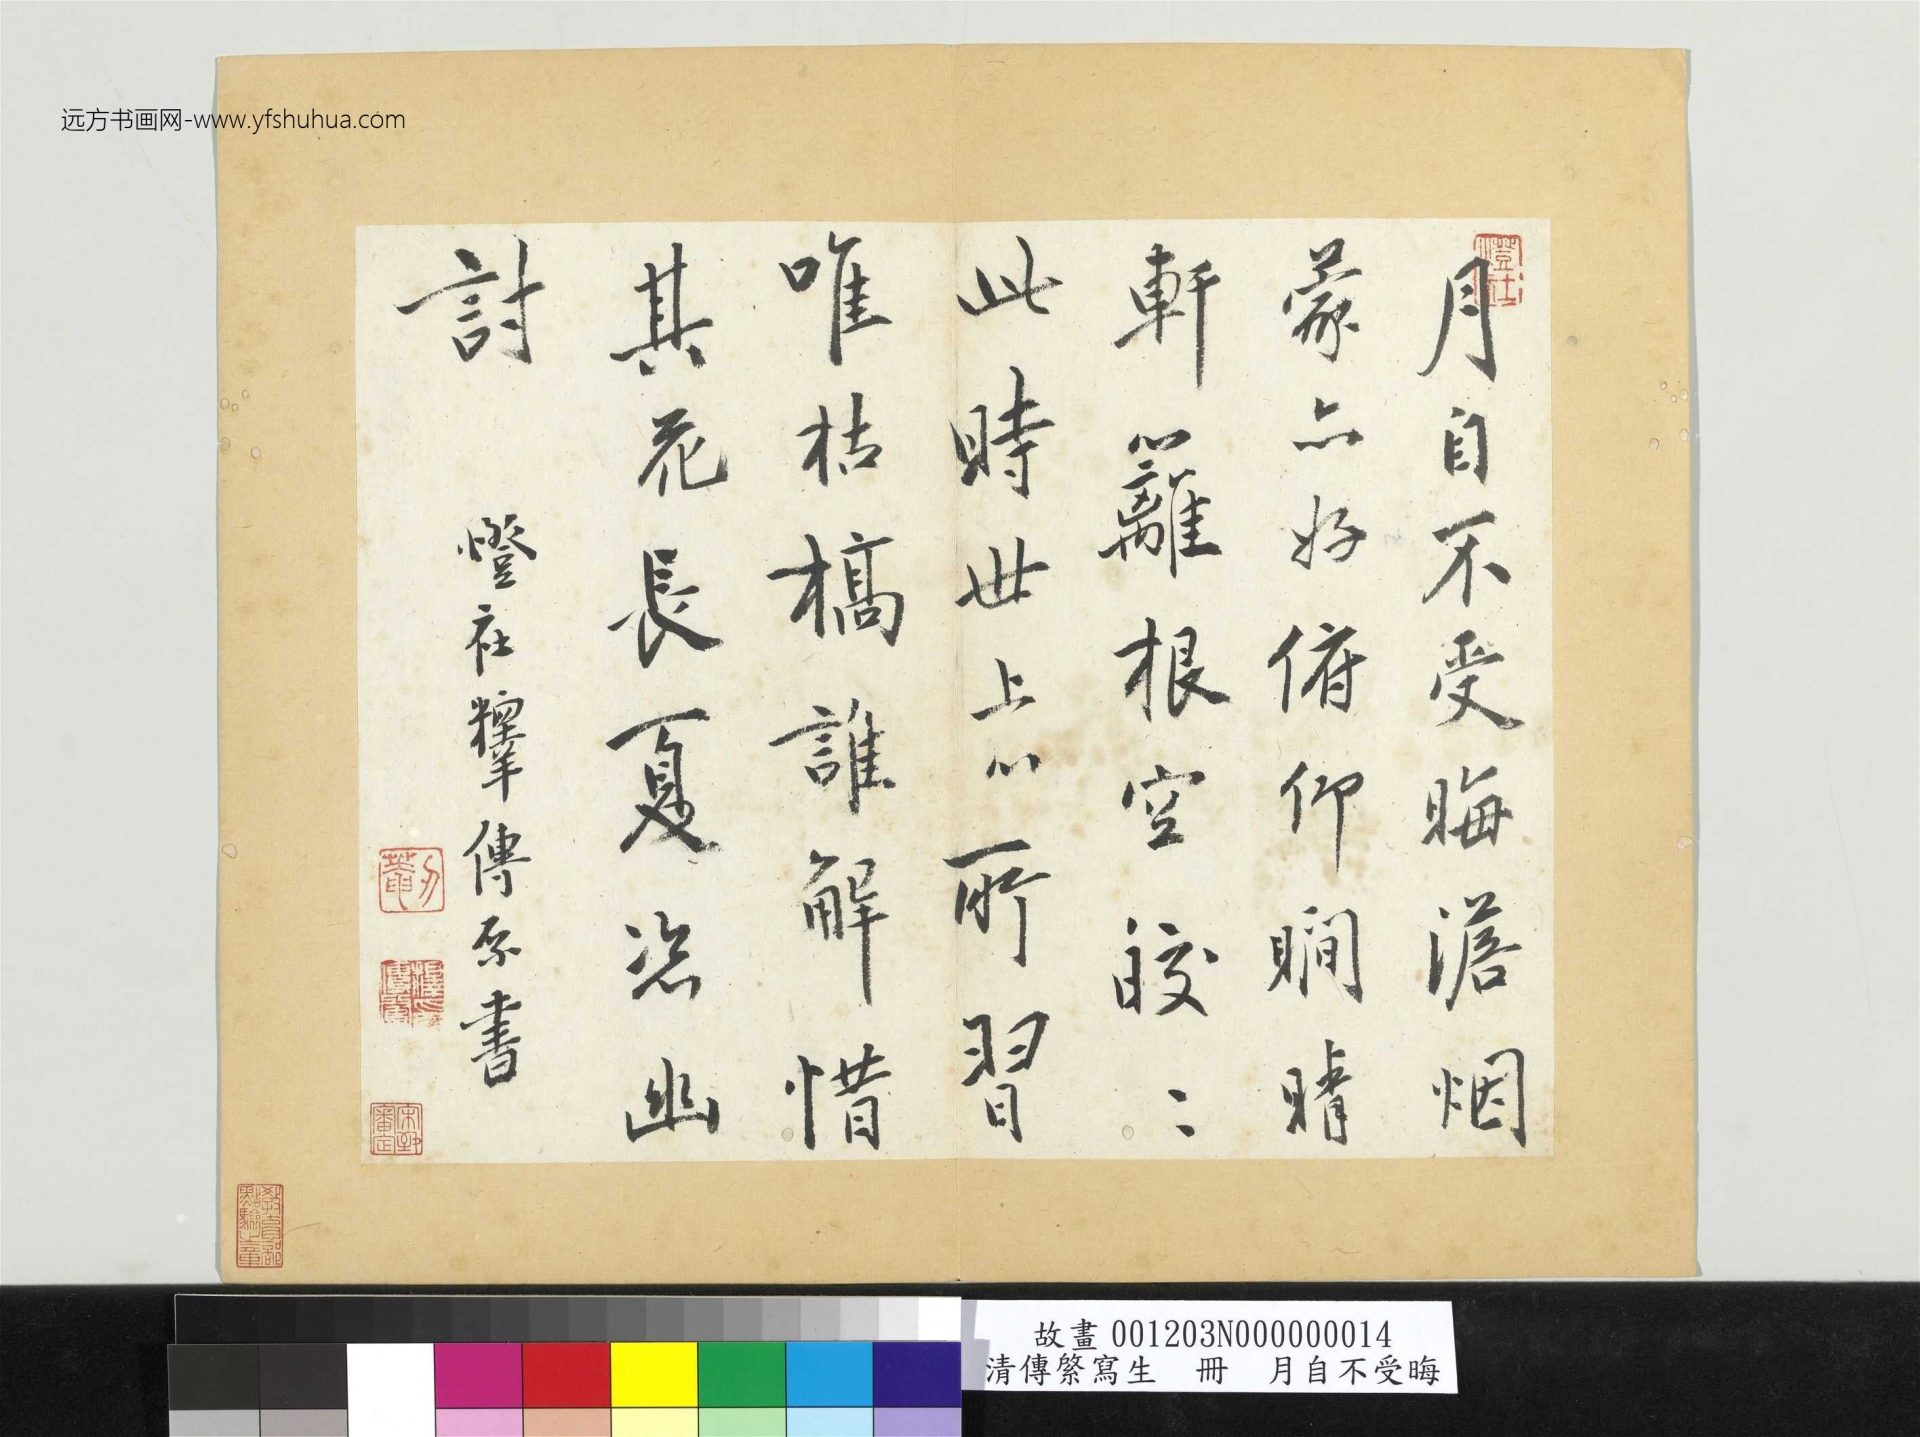 远方书画网-www.yfshuhua.com
月自不受晦澹烟
蒙亦好俯仰瞷晴
軒籬根空皎〻
此時世上心所習
唯枯槁誰解惜
其花長夏恣幽
討
燈社釋傳綮書
故畫 001203N000000014
清傳綮寫生 冊 月自不受晦